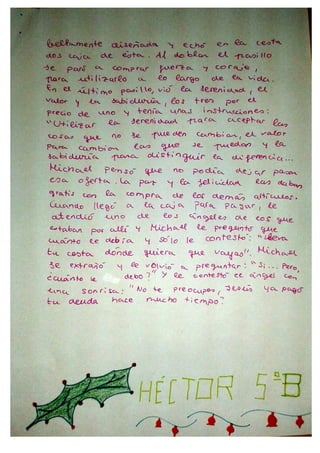 bellamente diseñada y echó en la cesta
dos caja de ésta. Al doblar el pasillo
se paró a comprar fuerza y coraje,
para utilizarlo a lo largo de la vida.
En el último pasillo, vió la serenidad, el
valor y la sabiduría, los tres por el
precio de uno y tenía unas instrucciones:
"Utilizar la serenidad para aceptar las
cosas que no se pueden cambiar, el valor
para cambiar las que se puedan y la
sabiduría para distinguir la diferencia...
Michael pensó que no podía dejar pasar
esa oferta. La paz y la felicidad las daban
gratis con la compra de los demás artículos.
Cuando llegó a la caja para pagar, le
atendió uno de los ángeles de los que
estaban por allí y Michael le preguntó que
cuánto le debía y sólo le contestó: "lleva
tu cesta donde quiera que vayas". Michael
se extrañó y le volvió a preguntar: "Sí... pero,
¿cuánto le debo?" Y le contestó el ángel con
una sonrisa: "No te preocupes, Jesús ya pagó
tu deuda hace mucho tiempo."
HÉCTOR 5ºB